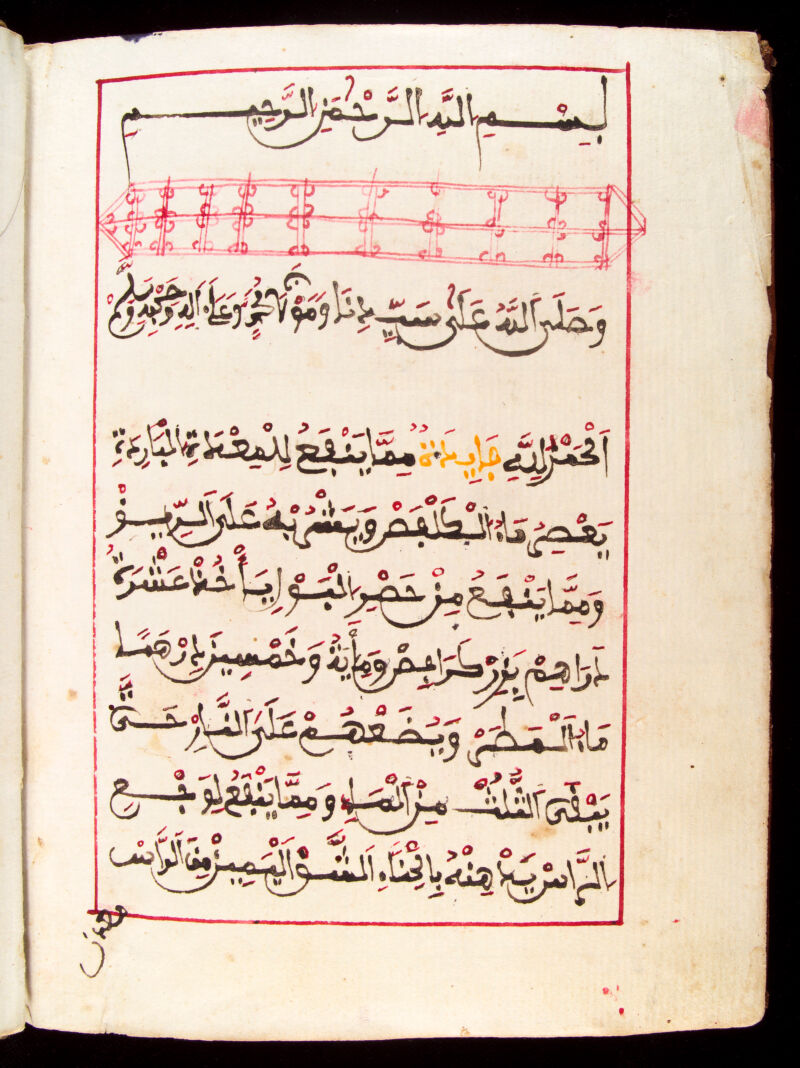 بِسْمِ اللَّهِ الرَّحْمَنِ الرَّحِيمِ
وَصَلَّى اللَّهُ عَلَى سَيِّدِنَا وَمَوْلَانَا مُحَمَّدٍ وَعَلَى آلِهِ وَصَحْبِهِ وَسَلَّمَ
الْحَمْدُ لِلَّهِ فَائِدَةٌ مِمَّا يَنْفَعُ لِلْمِعْدَةِ الْبَارِدَةِ
يَعْصِرُ مَاءَ وَيَشْرَبُهُ عَلَى الرِّيقِ
وَمِمَّا يَنْفَعُ مِنْ حَصْرِ الْبَوْلِ يَأْخُذُ عَشْرَةَ
دَرَاهِمْ بَزْرْ كَرَافِصْ وَمِأْيَةْ وَخَمْسِينَ دِرْهَمًا
مَاءَ الْمَطَرْ وَيَضَعْهُمْ عَلَى النَّارِ حَتَّى
يَبْقَى الثُّلُثْ مِنَ الْمَاءِ وَمِمَّا يَنْفَعُ لِوَجْعِ
الرَّاسْ يَدْهِنْهُ بِالْحِنَّاءِ الشَّقْ الْيَمِينْ مِنَ الرَّاسْ